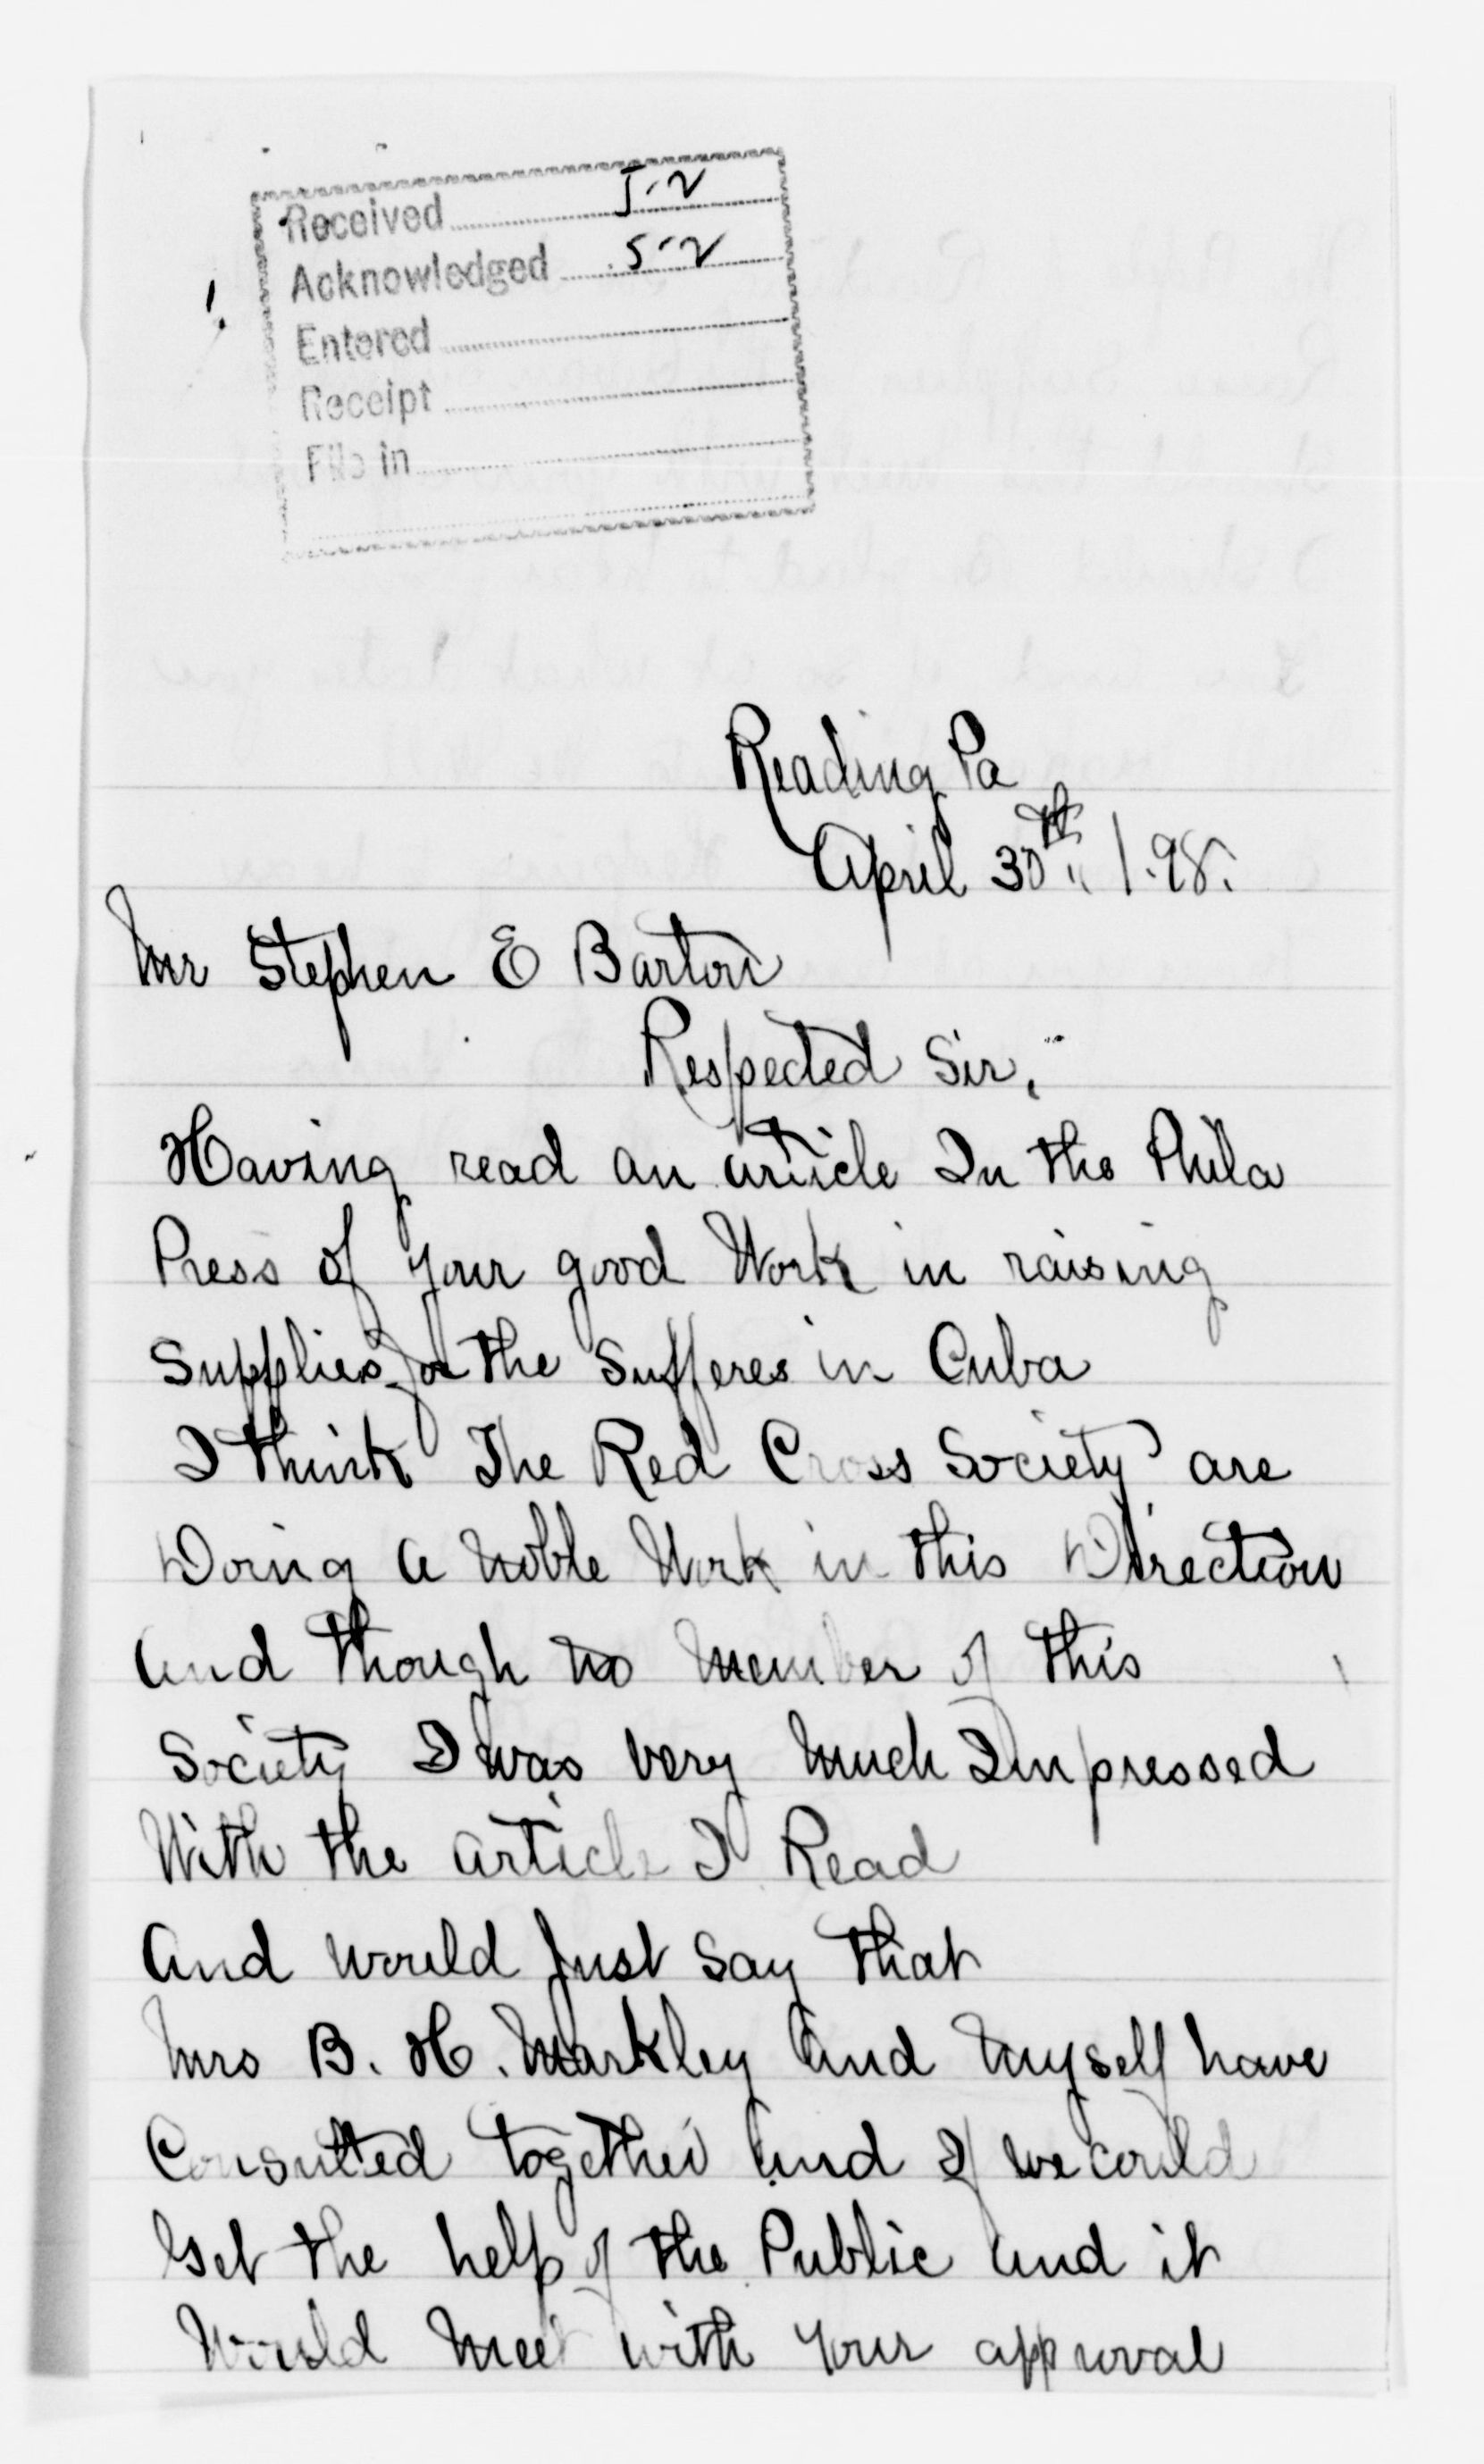 Received 5-2
Acknowledged 5-2
Entered
Receipt
File in
Reading Pa
April 30th 1.98.
Mr Stephen E Barton
Respected Sir,
Having read an article In the Phila
Press of your good Work in raising
Supplies for the Sufferes in Cuba
I think The Red Cross Society are
Doing a noble Work in this Direction
And though no member of this
Society I was very much Impressed
With the article I Read
And would Just Say that
Mrs B. H. Markley And Myself have
Consulted together And If we could
Get the help of the Public And it
Would Meet with your approval